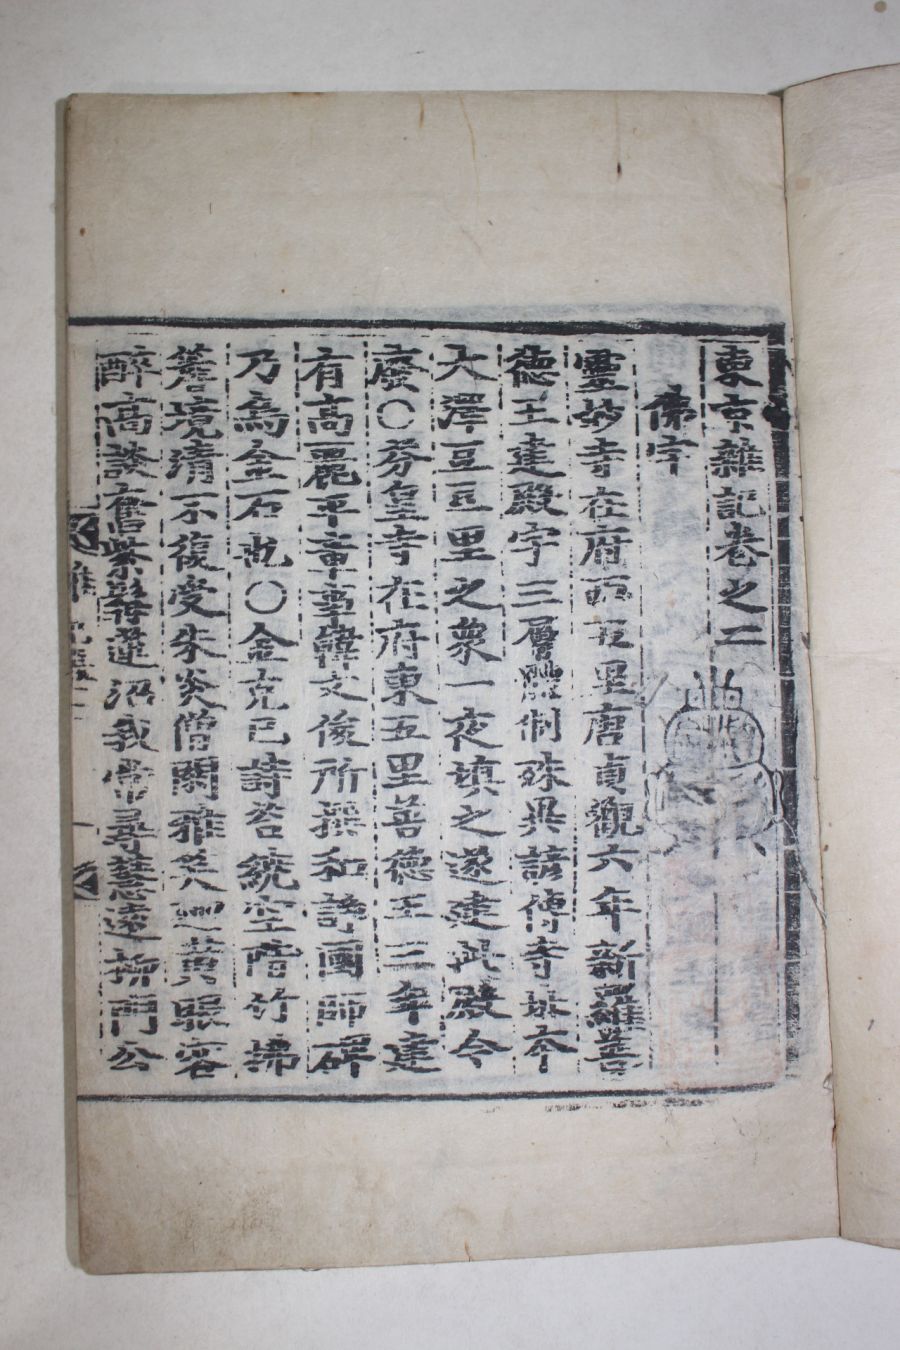 東京雜記卷之二
佛宇
靈妙寺在府西五里唐貞觀六年新羅善
德王建殿宇三層體制殊異諺傳寺址本
大澤豆豆里之衆一夜塡之遂建此殿今
廢○芬皇寺在府東五里善德王三年建
有高麗平章事韓文俊所撰和諍國師碑
乃烏金石也○金克己詩苔統空階竹拂
簷境淸一不復受朱炎僧閑雅笑迎黃眼客
醉高談奮紫髥蓮沼我常尋慧遠柳門公
雜記卷二